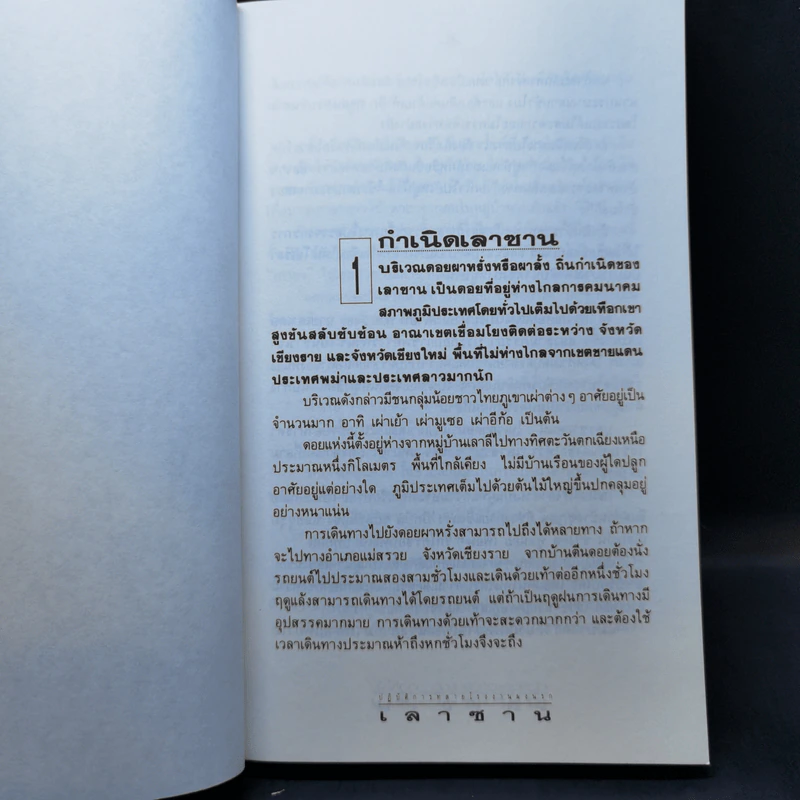 กำเนิดเลาซาน
1
บริเวณดอยผาหรั่งหรือผาลั้ง ถิ่นกำเนิดของ
เลาซาน เป็นดอยที่อยู่ห่างไกลการคมนาคม
สภาพภูมิประเทศโดยทั่วไปเต็มไปด้วยเทือกเขา
สูงชันสลับซับซ้อน อาณาเขตเชื่อมโยงติดต่อระหว่าง จังหวัด
เชียงราย และจังหวัดเชียงใหม่ พื้นที่ไม่ห่างไกลจากเขตชายแดน
ประเทศพม่าและประเทศลาวมากนัก
บริเวณดังกล่าวมีชนกลุ่มน้อยชาวไทยภูเขาเผ่าต่างๆ อาศัยอยู่เป็น
จำนวนมาก อาทิ เผ่าเย้า เผ่ามูเซอ เผ่าอีก้อ เป็นต้น
ดอยแห่งนี้ตั้งอยู่ห่างจากหมู่บ้านเลาลีไปทางทิศตะวันตกเฉียงเหนือ
ประมาณหนึ่งกิโลเมตร พื้นที่ใกล้เคียง ไม่มีบ้านเรือนของผู้ใดปลูก
อาศัยอยู่แต่อย่างใด ภูมิประเทศเต็มไปด้วยต้นไม้ใหญ่ขึ้นปกคลุมอยู่
อย่างหนาแน่น
การเดินทางไปยังดอยผาหรั่งสามารถไปถึงได้หลายทาง ถ้าหาก
จะไปทางอำเภอแม่สรวย จังหวัดเชียงราย จากบ้านตีนดอยต้องนั่ง
รถยนต์ไปประมาณสองสามชั่วโมงและเดินด้วยเท้าต่ออีกหนึ่งชั่วโมง
ฤดูแล้งสามารถเดินทางได้โดยรถยนต์ แต่ถ้าเป็นฤดูฝนการเดินทางมี
อุปสรรคมากมาย การเดินทางด้วยเท้าจะสะดวกมากกว่า และต้องใช้
เวลาเดินทางประมาณห้าถึงหกชั่วโมงจึงจะถึง
ปฏิบัติการทลายโรงงานนรก
เลาซาน